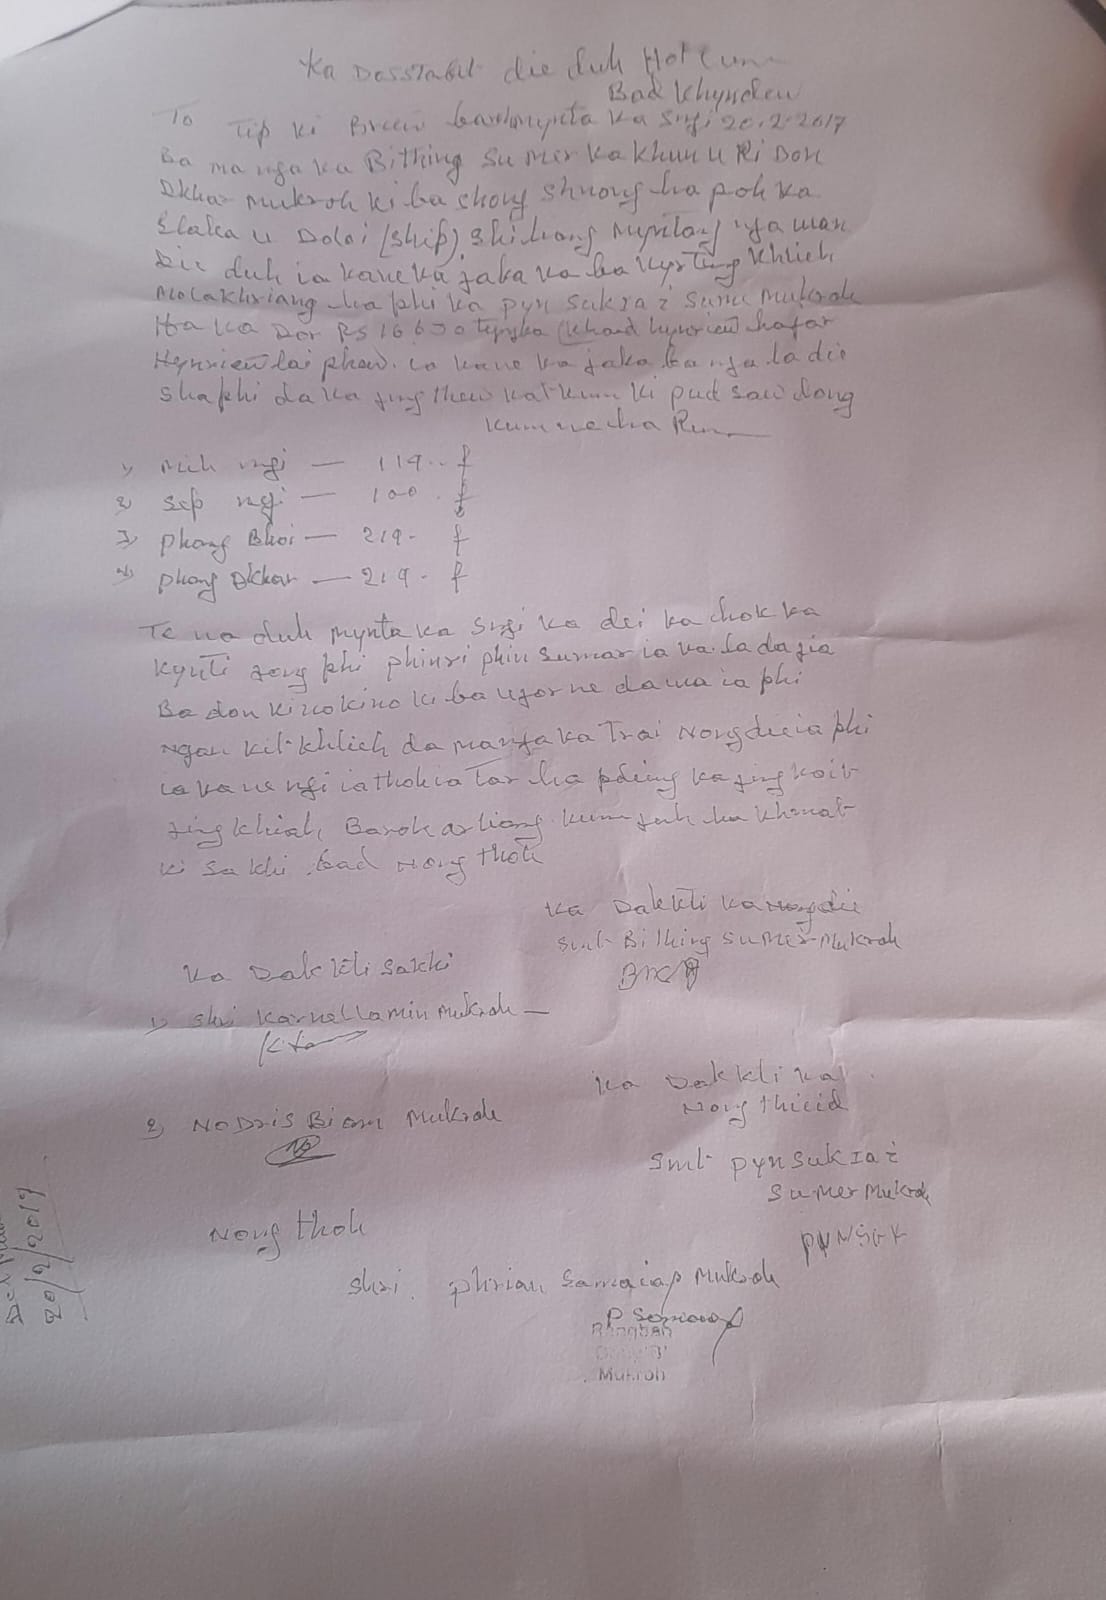 Ka Dasstabit die duh
Bad Khyndew
To Tip ki Briew ka sngi 20.2.2017
Ba ma nga ka Bithing Sumer ka khun u Ri Don
Dkhar Mukroh ki ba shong shnong ha poh ka
Elaka u Doloi (Ship) nga wan
Die duh ia kane ka jaka ka ba kyrteng Khlieh
Molakhriang ha phi ka pyn sukrai Sumer Mukroh
Ha ka Dor Rs 16630 tyngka (khad hynriew hajar
Hynriew lai phew. ia kane ka jaka ba nga la die
sha phi da ka jing thew kat kum ki pud saw dong
kumne ha
1) Mih ngi — 119.. f
2) Sep ngi — 100. f
3) Phang Bhoi — 219- f
4) Phang Dkhar — 219- f
Te na duh mynta ka sngi ka dei ka hok ka
kynti jong phi phin ri phin sumar ia ka. la da jia
Ba don kino kino ki ba ujor ne dawa ia phi
Ngan kit khlieh da ma nga ka Trai Nongdie ia phi
ia kane ngi ia thoh ia Tar ha pdeng ka jing koit
jing khiah Baroh ar liang kum juh ha khmat
ki sakhi bad Nong thoh
Ka Dak kti ka nongdie
Smt Bithing Sumer Mukroh
Ka Dak kti sakhi
1) Shri Karnel Lamin Mukroh —
Ka Dak kti ka
Nong thied
2) Nodris Biam Mukroh
Smt Pynsukrai
Sumer Mukroh
PYNSUK
Nong thoh
Shri. Phrian Mukroh
Rangbah
Mukroh
20/2/2017